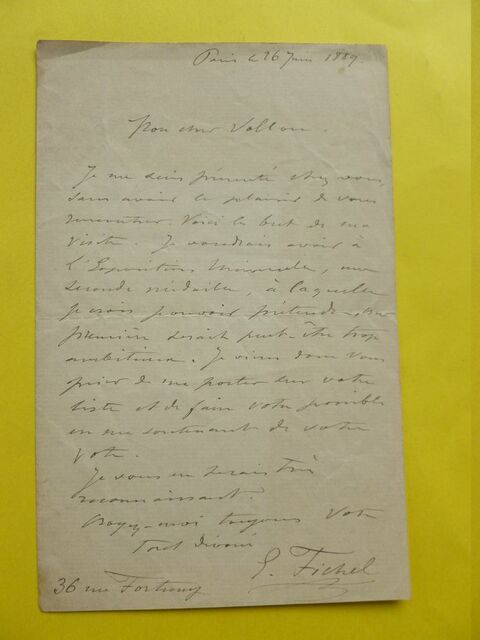 Paris le 26 Juin 1889
Mon cher Vollon.
Je me suis présenté chez vous,
sans avoir le plaisir de vous
rencontrer. Voici le but de ma
visite. Je voudrais avoir à
l'Exposition Universelle, une
seconde médaille, à laquelle
je crois pouvoir prétendre. Une
première serait peut-être trop
ambitieux. Je viens donc vous
prier de me porter sur votre
liste et de faire votre possible
en me soutenant de votre
vote.
Je vous en serais très
reconnaissant.
Croyez-moi toujours votre
tout dévoué
E. Fichel
36 rue Fortuny